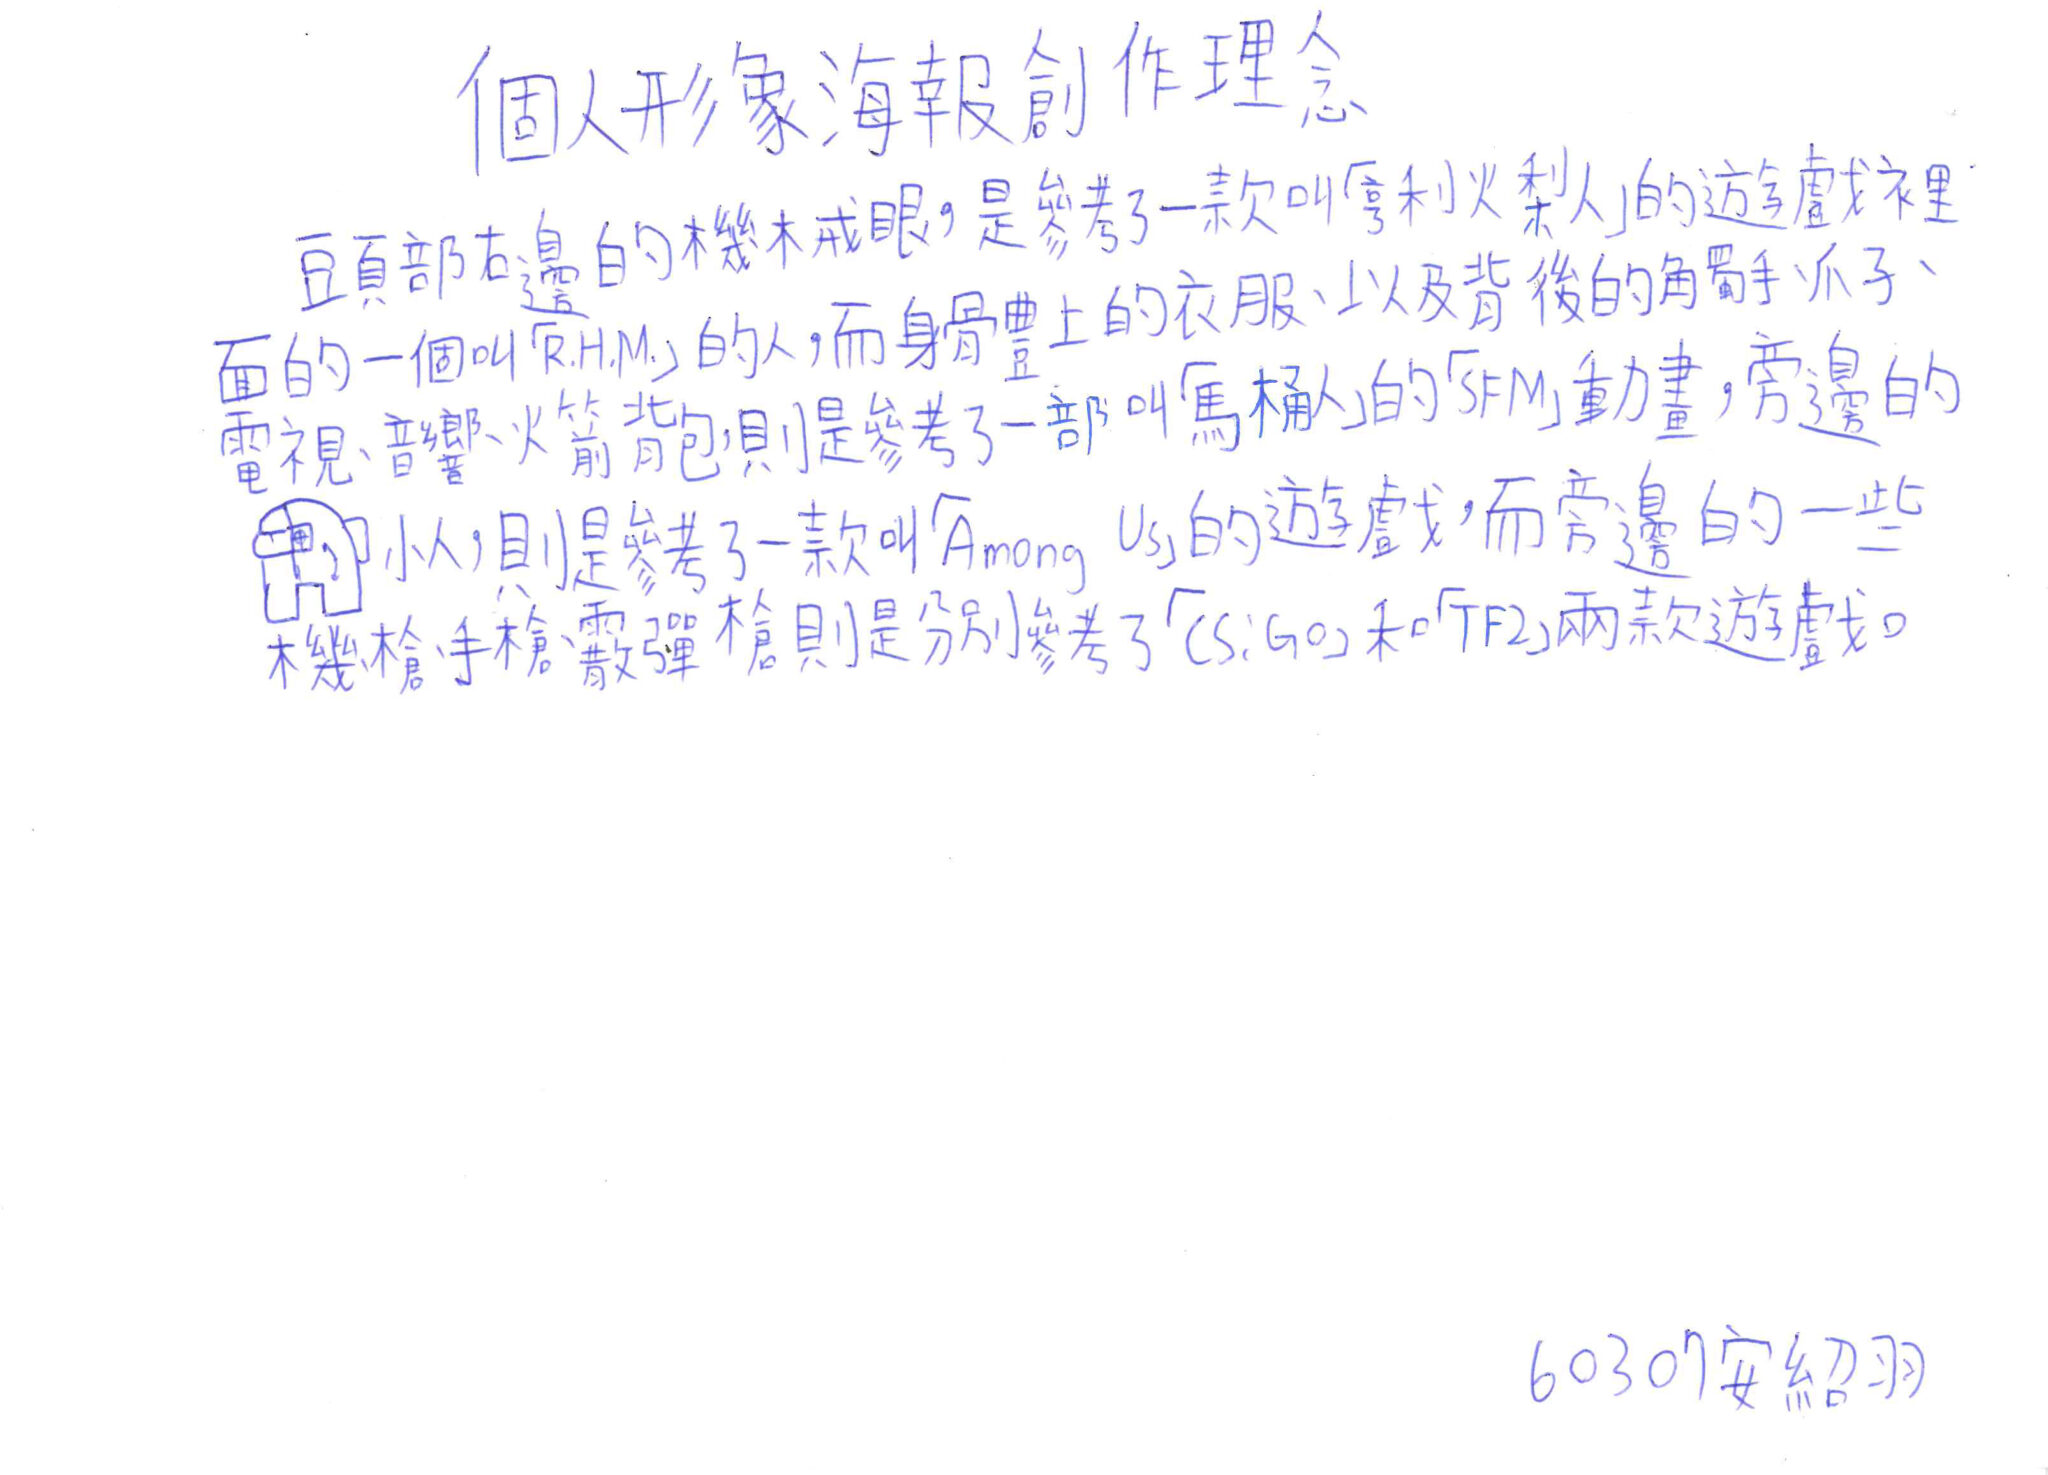 個人形象海報創作理念
頭部右邊的機械眼，是參考了一款叫「亨利火梨人」的遊戲裡
面的一個叫「R.H.M.」的人，而身體上的衣服、以及背後的觸手、爪子、
電視、音響、火箭背包，則是參考了一部叫「馬桶人」的「SFM」動畫，旁邊的
小人，則是參考了一款叫「Among Us」的遊戲，而旁邊的一些
機槍、手槍、霰彈槍則是分別參考了「CS:GO」和「TF2」兩款遊戲。
60307安紹羽